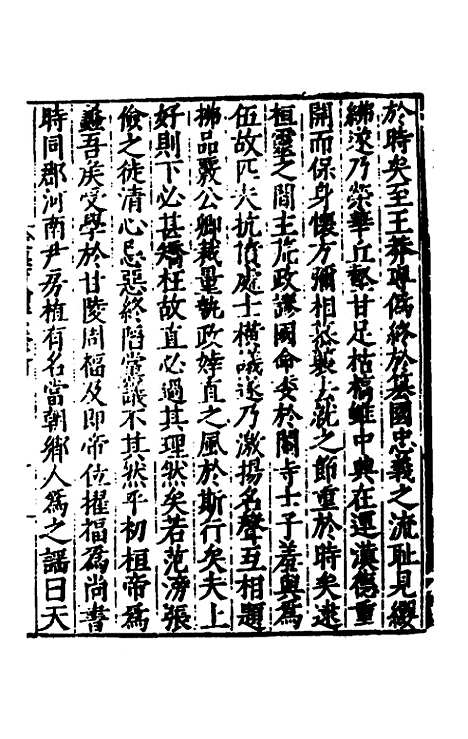 於時矣至王莽專偽終於篡國忠義之流耻見纓
紼遂乃榮華丘壑甘足枯槁雖中興在運漢德重
開而保身懷方彌相慕襲去就之節重於時矣逮
桓靈之間主荒政謬國命委於閹寺士子羞與為
伍故匹夫抗憤處士橫議遂乃激揚名聲互相題
拂品覈公卿裁量執政婞直之風於斯行矣夫上
好則下必甚矯枉故直必過其理然矣若范滂張
儉之徒清心忌惡終陷黨議不其然乎初桓帝為
蠡吾矦受學於甘陵周福及即帝位擢福為尚書
時同郡河南尹房植有名當朝鄉人為之謡曰天